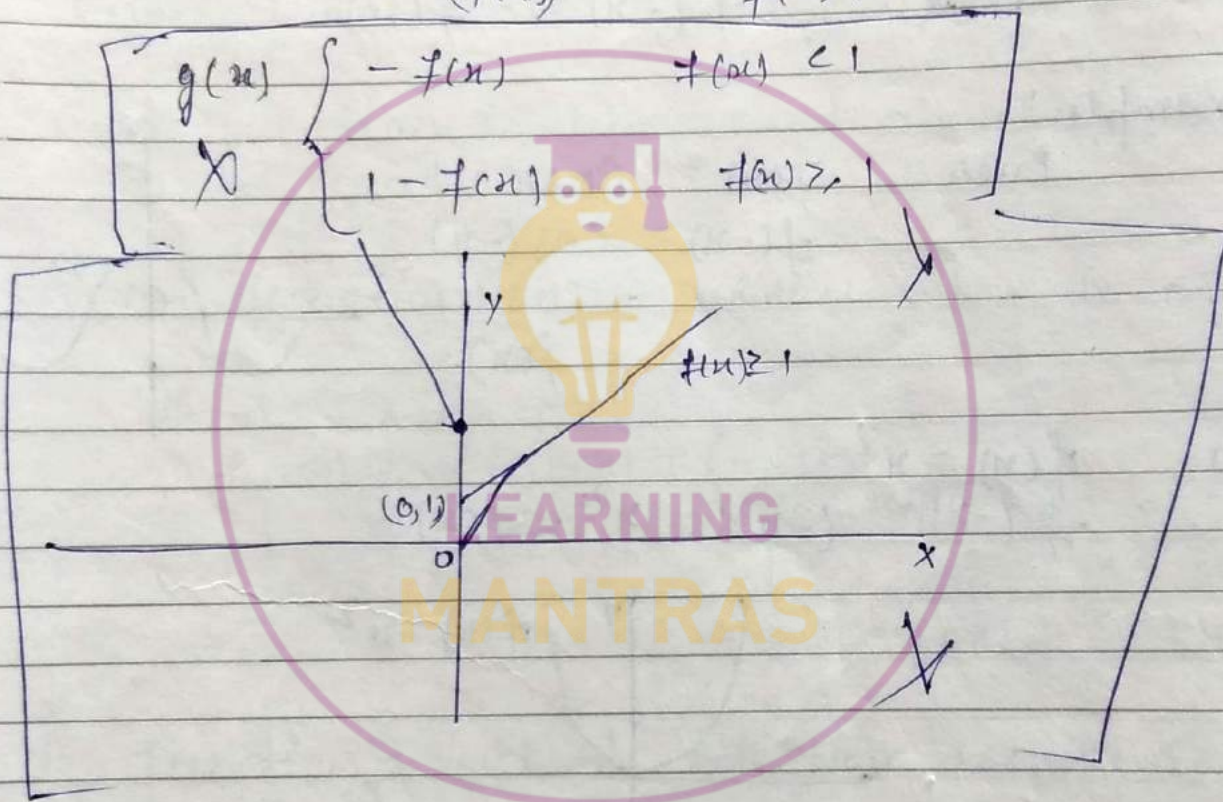 g(x) { - f(x) f(x) < 1
1 - f(x) f(x) ≥ 1
y
f(x) ≥ 1
(0,1)
LEARNING
0
x
MANTRAS